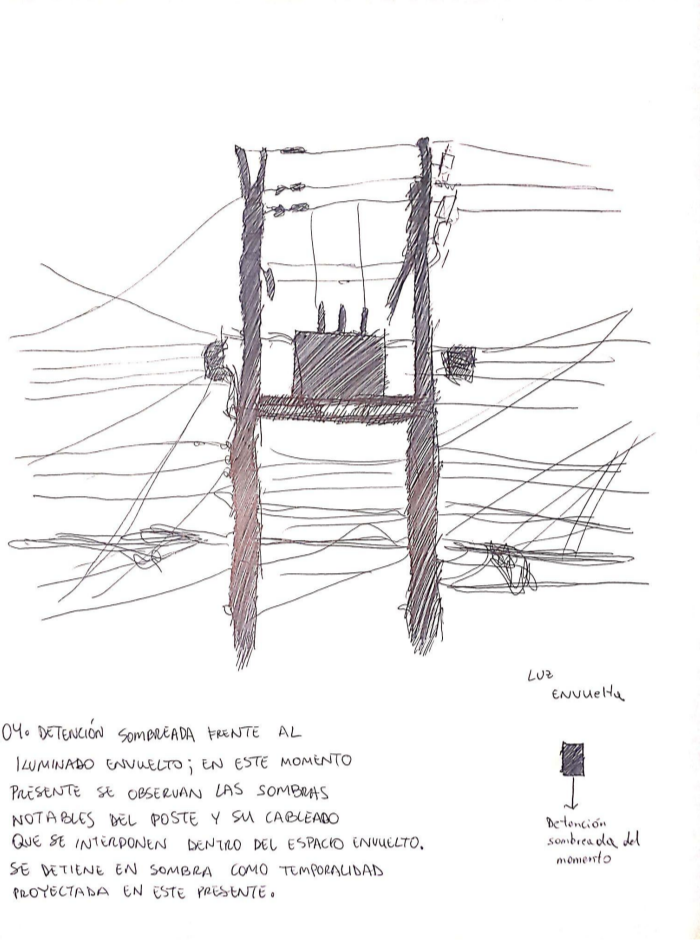 LUZ
ENVUELTA
04. DETENCIÓN SOMBREADA FRENTE AL
ILUMINADO ENVUELTO; EN ESTE MOMENTO
PRESENTE SE OBSERVAN LAS SOMBRAS
NOTABLES DEL POSTE Y SU CABLEADO
QUE SE INTERPONEN DENTRO DEL ESPACIO ENVUELTO.
SE DETIENE EN SOMBRA COMO TEMPORALIDAD
PROYECTADA EN ESTE PRESENTE.
Detención
sombreada del
momento